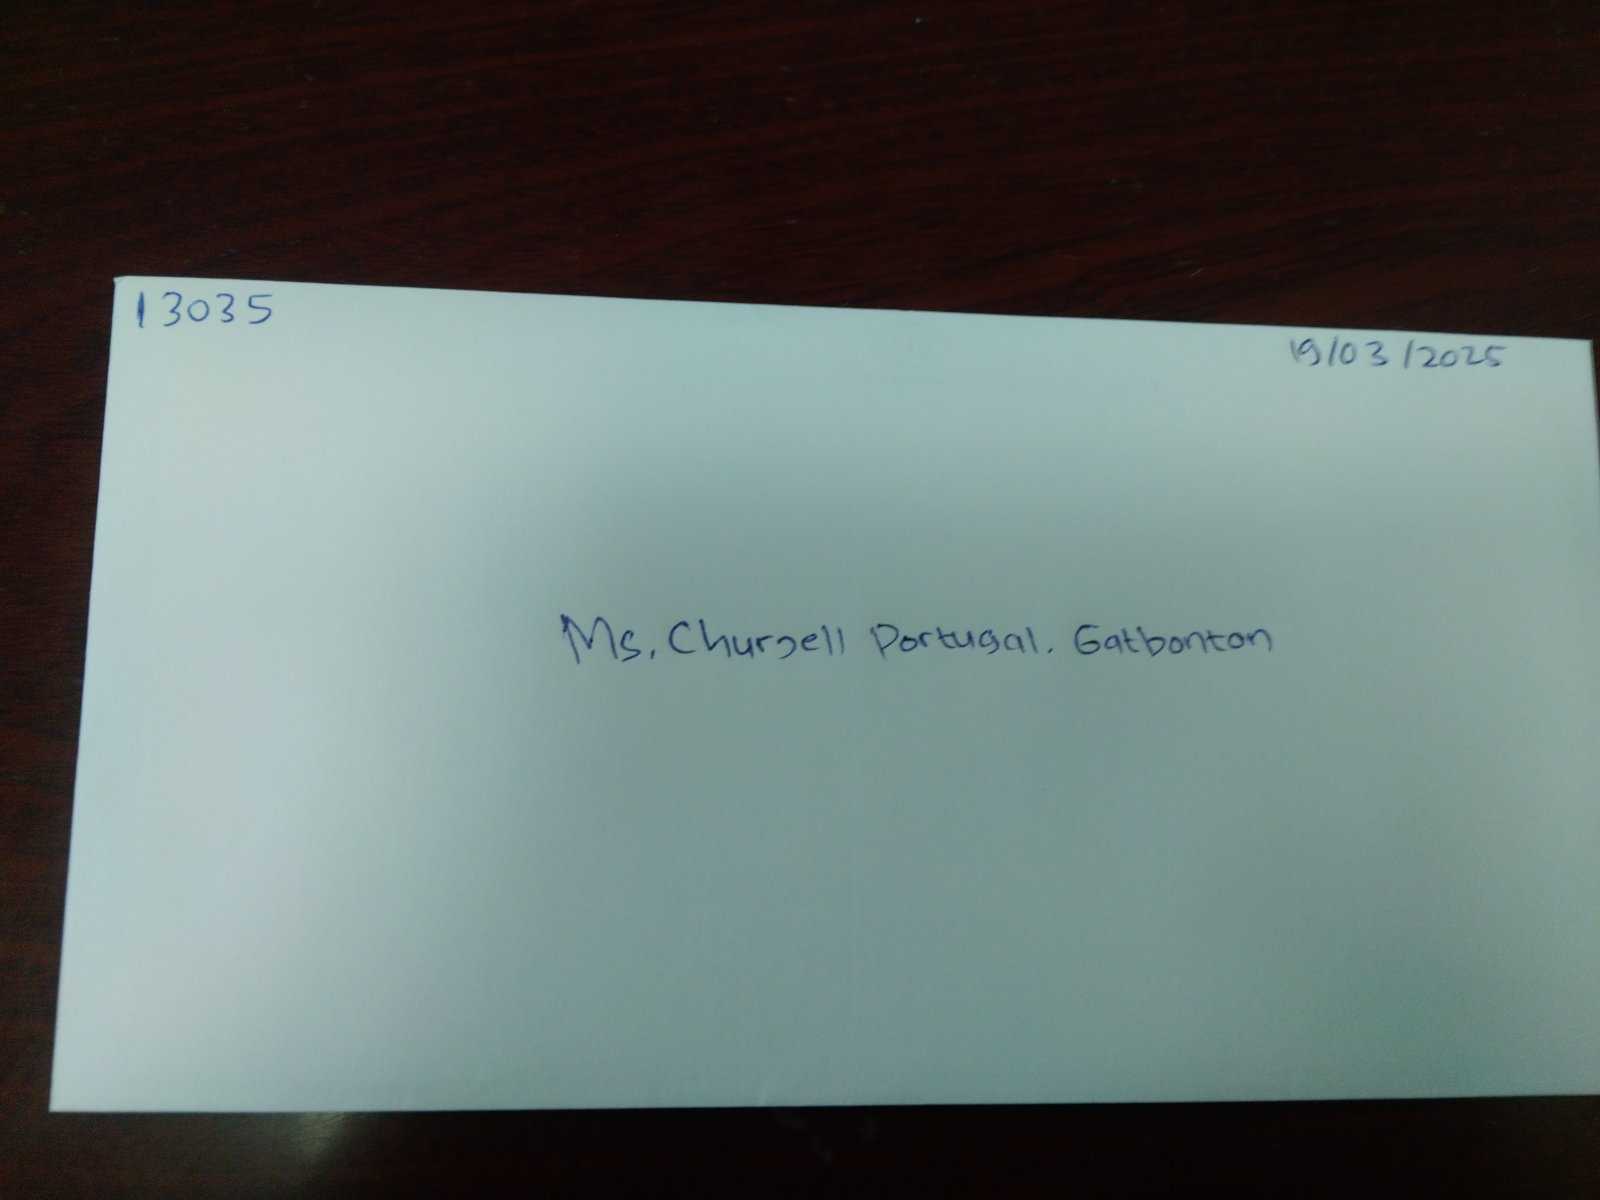 13035
19/03/2025
Ms. Churzell Portugal. Gatbonton